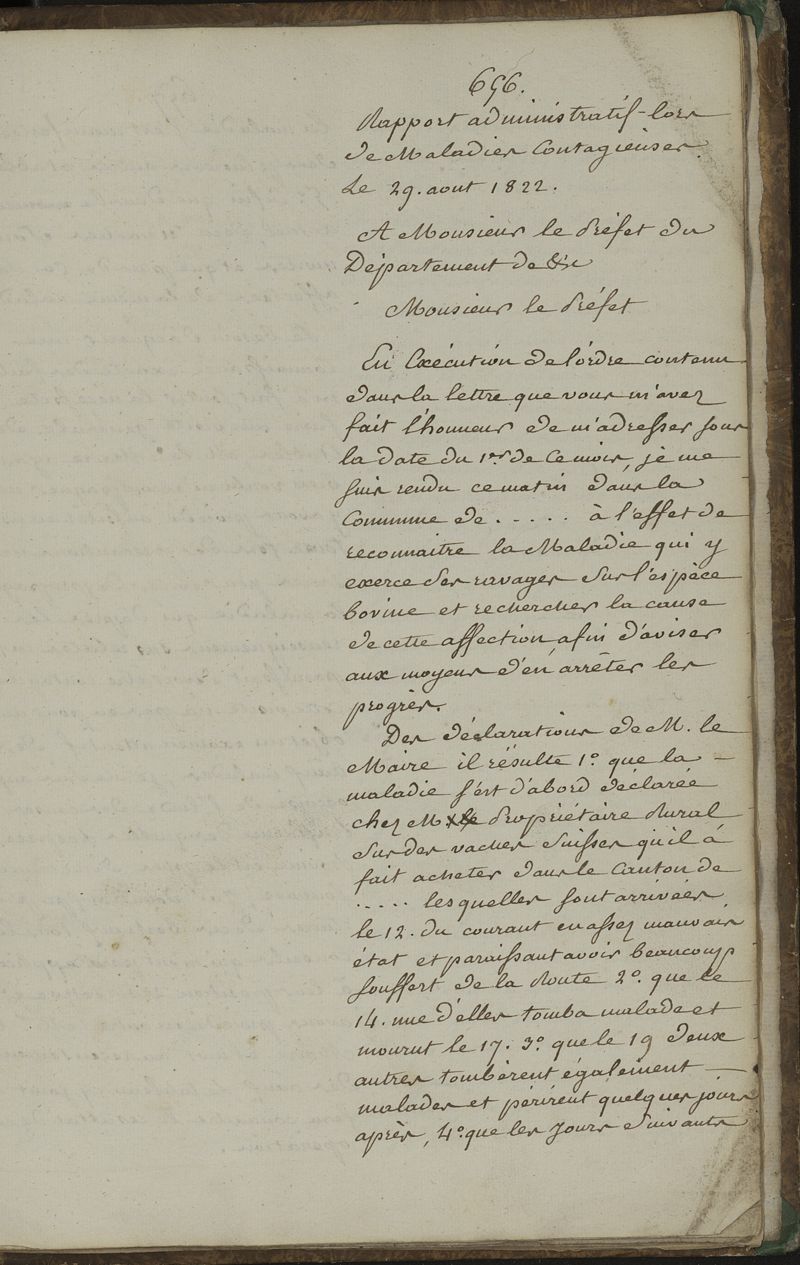 656.
Rapport administratif-lors
de Maladies Contagieuses.
Le 29. aout 1822.
A Monsieur le Préfet du
Département de &c
Monsieur le Préfet
En Exécution de l'ordre contenu
dans la lettre que vous m'avez
fait l'honneur de m'adresser sous
la date du 1er de ce mois, je me
suis rendu ce matin dans la
Commune de ..... à l'effet de
reconnaitre la Maladie qui y
exerce des ravages sur l'espèce
bovine et rechercher la cause
de cette affection afin d'aviser
aux moyens d'en arrêter les
progrès.
Des déclarations de M. le
Maire il résulte 1.º que la -
maladie s'est d'abord déclarée
chez M. Propriétaire Rural
sur des vaches Suisses qu'il à
fait acheter dans le Canton de
..... lesquelles sont arrivées
le 12. du courant en assez mauvais
état et paraissant avoir beaucoup
souffert de la Route 2.º que le
14. une d'elles tomba malade et
mourut le 17. 3.º que le 19 deux
autres tombèrent également —
malades et périrent quelques jours
après, 4.º que les jours Suivants